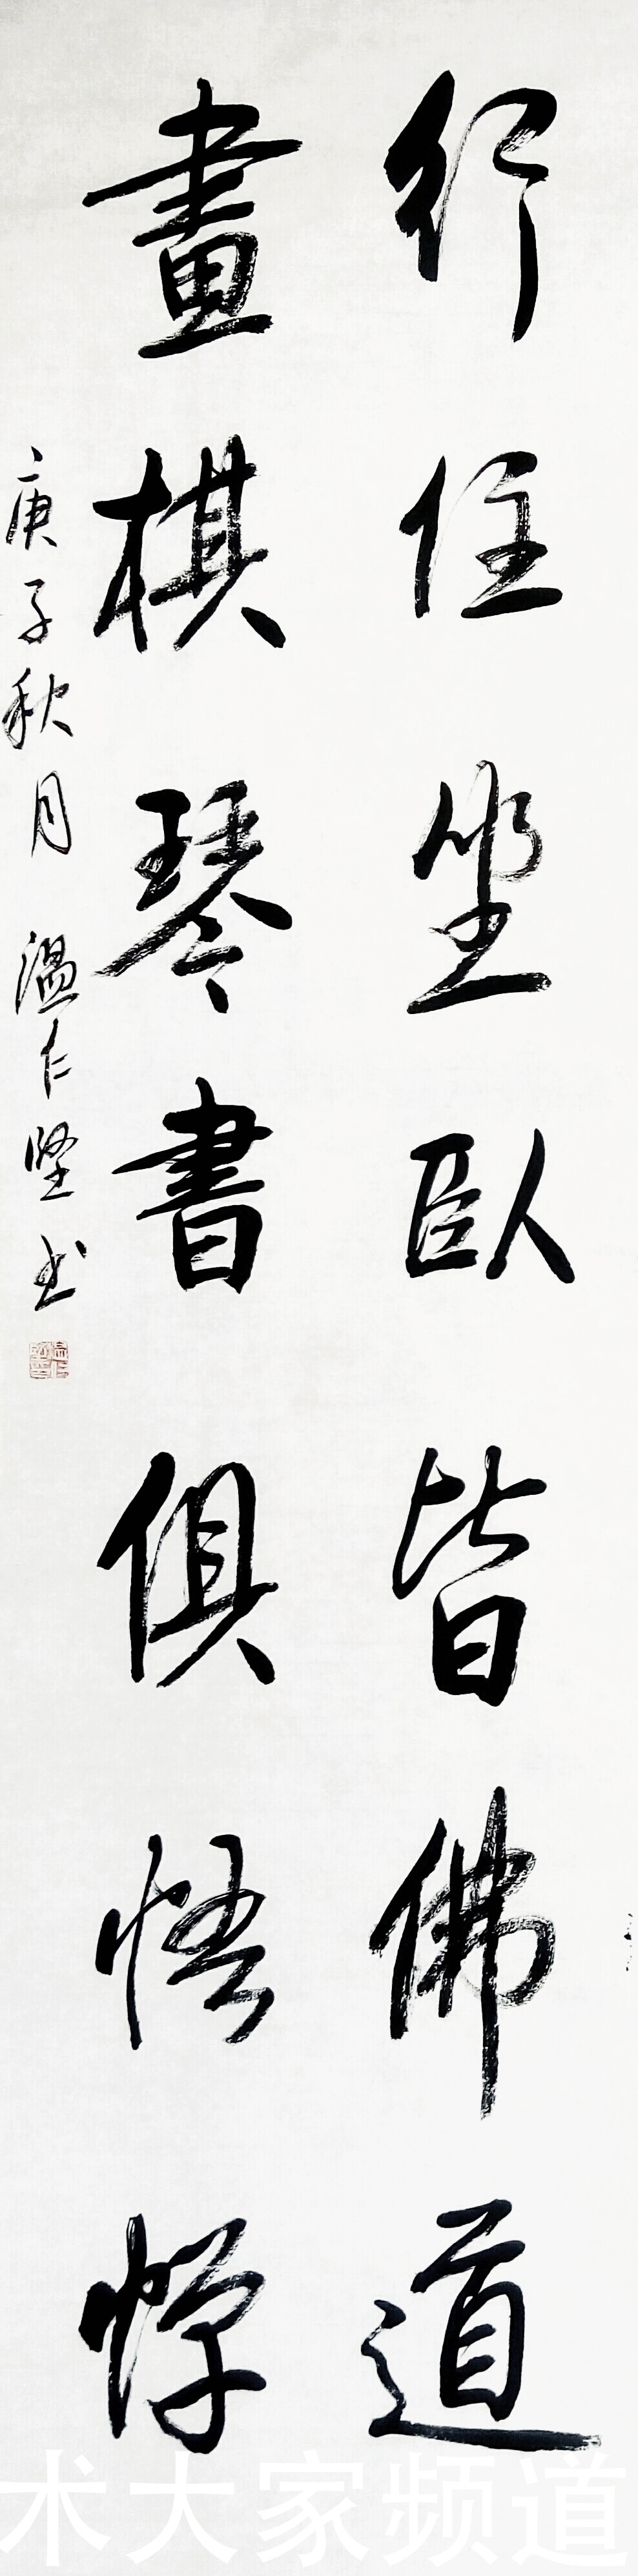 行住坐臥皆佛道
畫棋琴書俱悟禅
庚子秋月溫仁堅书
术大家频道